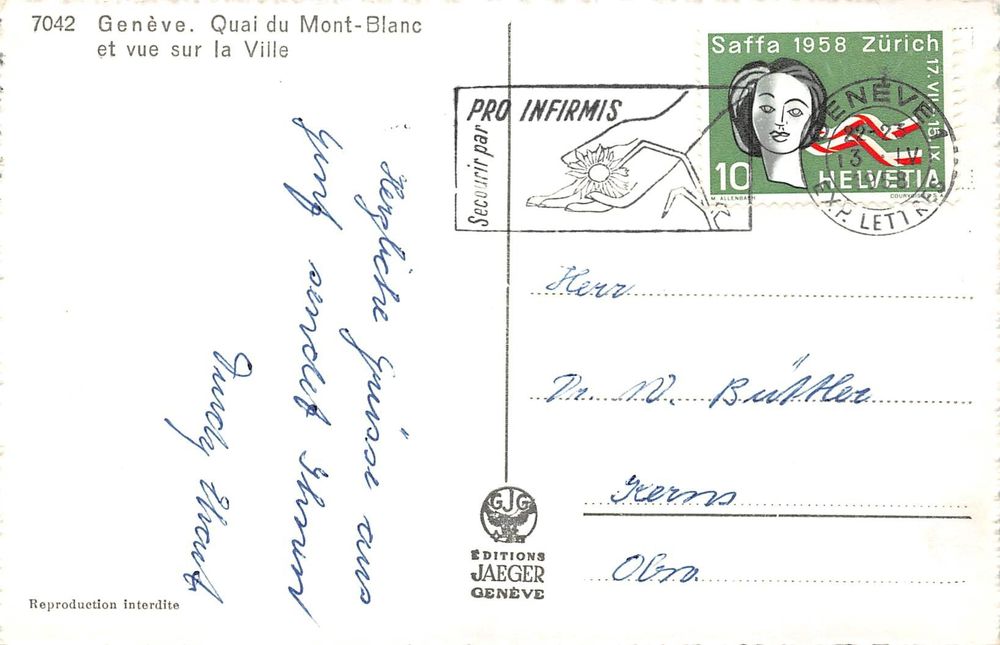 7042 Genève. Quai du Mont-Blanc
et vue sur la Ville
Herzliche Grüsse aus
Genf sendet Ihnen
Trudy
PRO INFIRMIS
Secourir par
Saffa 1958 Zürich
10 HELVETIA
M. ALLENBACH
COURVOISIER S.A.
GENÈVE 1
22-23
13 IV
1958
EXP. LETTRES
Herr
Dr. W. Büttler
Kerns
Obw.
GJG
ÉDITIONS
JAEGER
GENÈVE
Reproduction interdite